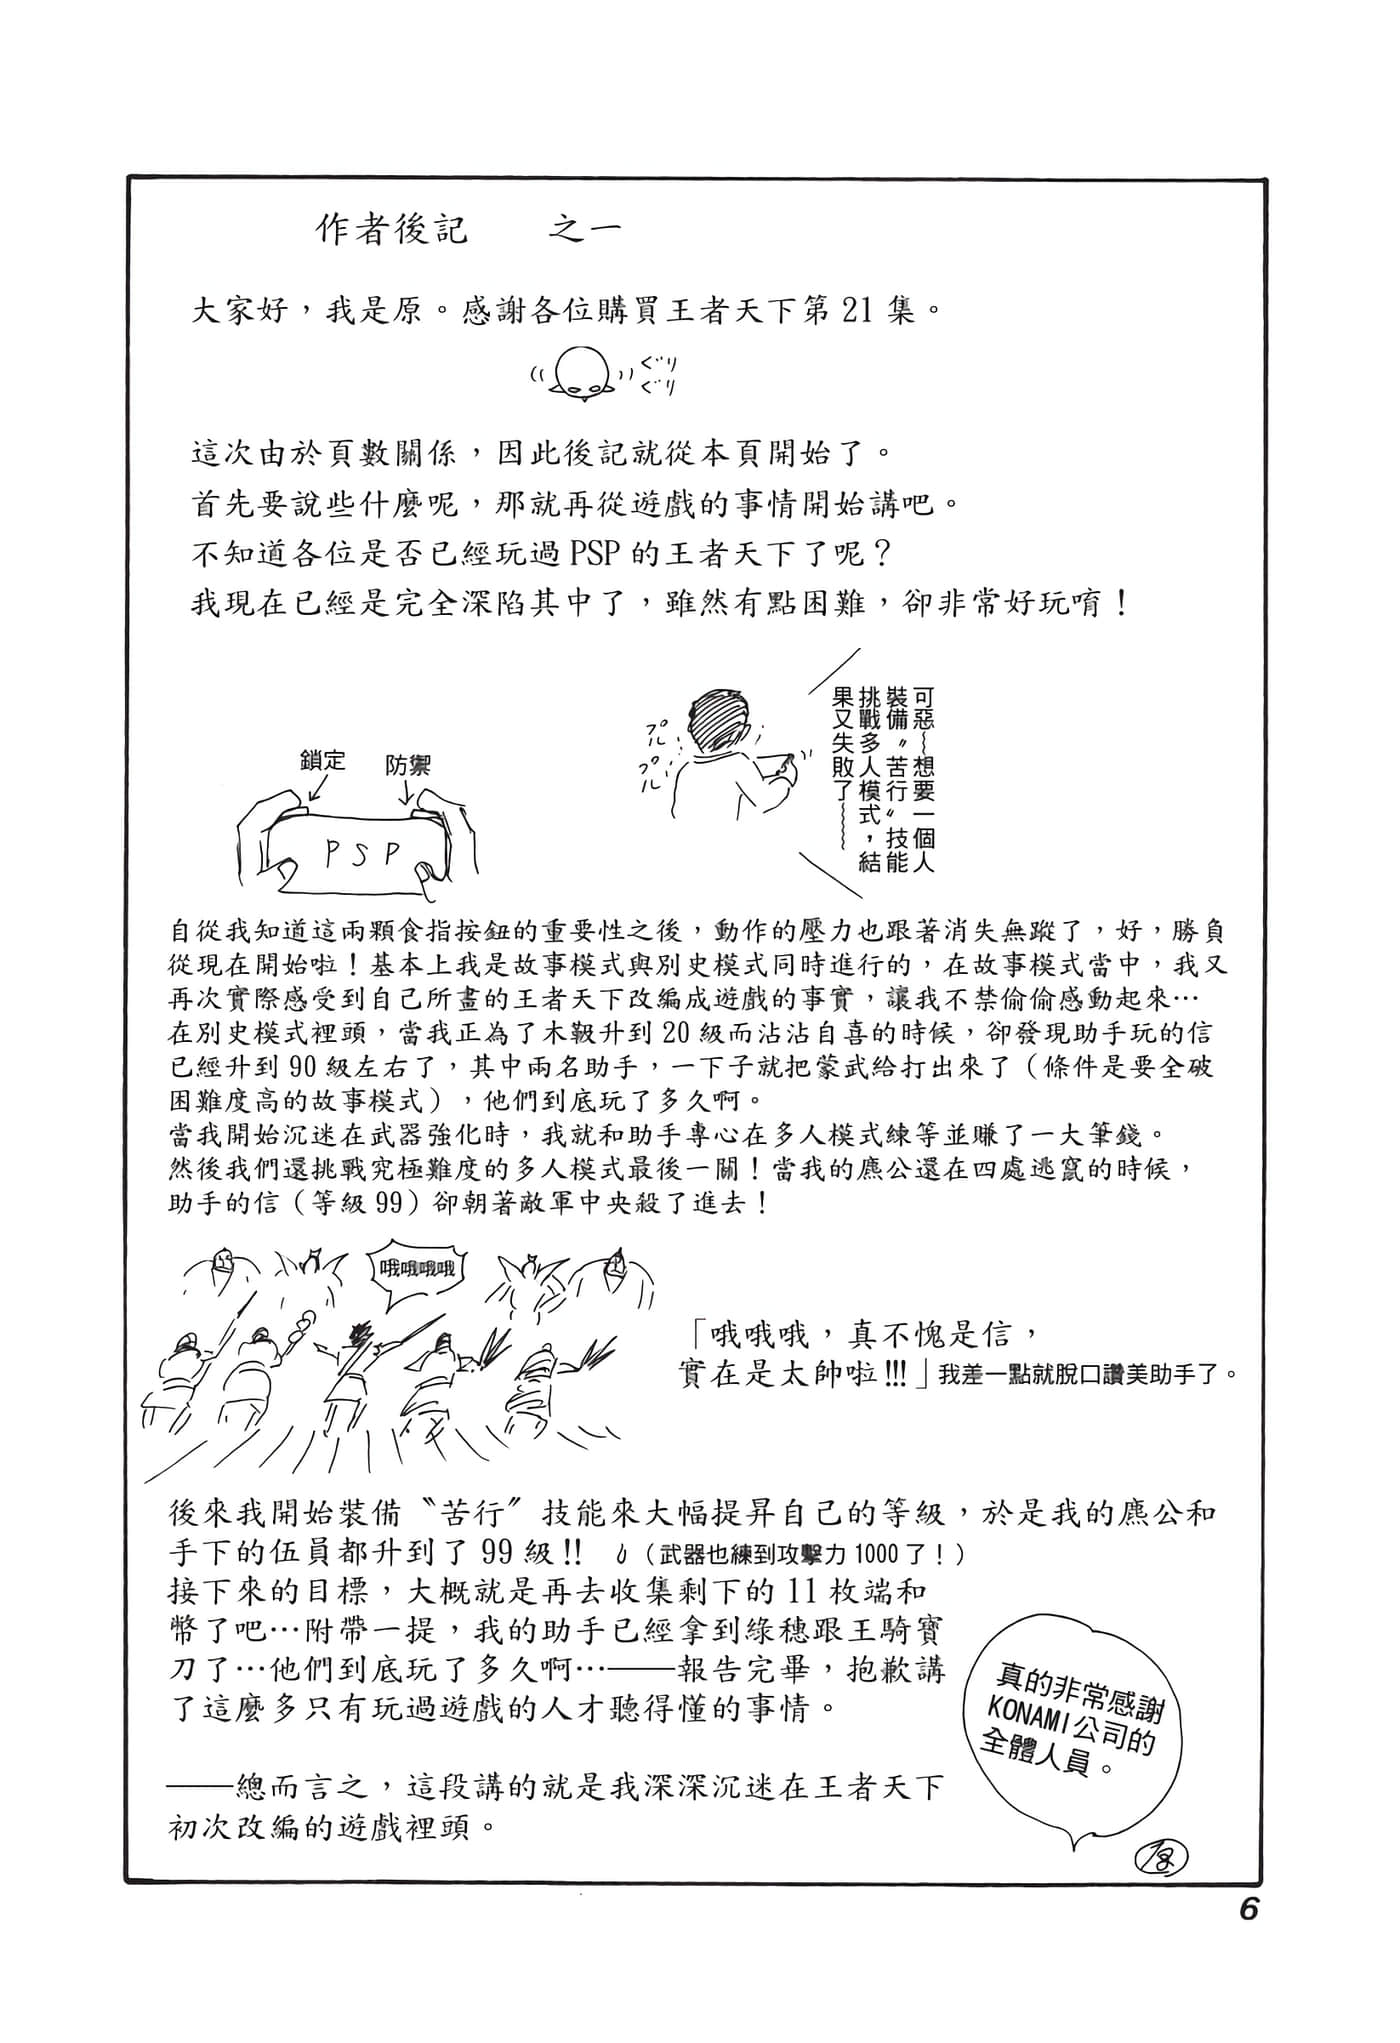 作者後記　　之一
大家好，我是原。感謝各位購買王者天下第21集。
ぐり
ぐり
這次由於頁數關係，因此後記就從本頁開始了。
首先要說些什麼呢，那就再從遊戲的事情開始講吧。
不知道各位是否已經玩過PSP的王者天下了呢？
我現在已經是完全深陷其中了，雖然有點困難，卻非常好玩唷！
可惡～～想要一個人
裝備〝苦行〞技能
挑戰多人模式，結
果又失敗了～～～
プル
プル
鎖定
防禦
PSP
自從我知道這兩顆食指按鈕的重要性之後，動作的壓力也跟著消失無蹤了，好，勝負
從現在開始啦！基本上我是故事模式與別史模式同時進行的，在故事模式當中，我又
再次實際感受到自己所畫的王者天下改編成遊戲的事實，讓我不禁偷偷感動起來…
在別史模式裡頭，當我正為了木靫升到20級而沾沾自喜的時候，卻發現助手玩的信
已經升到90級左右了，其中兩名助手，一下子就把蒙武給打出來了（條件是要全破
困難度高的故事模式），他們到底玩了多久啊。
當我開始沉迷在武器強化時，我就和助手專心在多人模式練等並賺了一大筆錢。
然後我們還挑戰究極難度的多人模式最後一關！當我的麃公還在四處逃竄的時候，
助手的信（等級99）卻朝著敵軍中央殺了進去！
哦哦哦哦
「哦哦哦，真不愧是信，
實在是太帥啦!!!」我差一點就脫口讚美助手了。
後來我開始裝備〝苦行〞技能來大幅提昇自己的等級，於是我的麃公和
手下的伍員都升到了99級!!　（武器也練到攻擊力1000了！）
接下來的目標，大概就是再去收集剩下的11枚端和
幣了吧…附帶一提，我的助手已經拿到綠穗跟王騎寶
刀了…他們到底玩了多久啊…——報告完畢，抱歉講
了這麼多只有玩過遊戲的人才聽得懂的事情。
——總而言之，這段講的就是我深深沉迷在王者天下
初次改編的遊戲裡頭。
真的非常感謝
KONAMI公司的
全體人員。
原
6